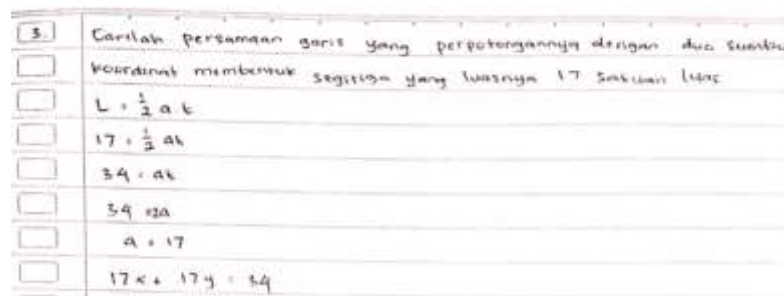 3. Carilah persamaan garis yang perpotongannya dengan dua sumbu
koordinat membentuk segitiga yang luasnya 17 satuan luas
L = 1/2 a t
17 = 1/2 at
34 = at
34 = 2a
a = 17
17x + 17y = 34